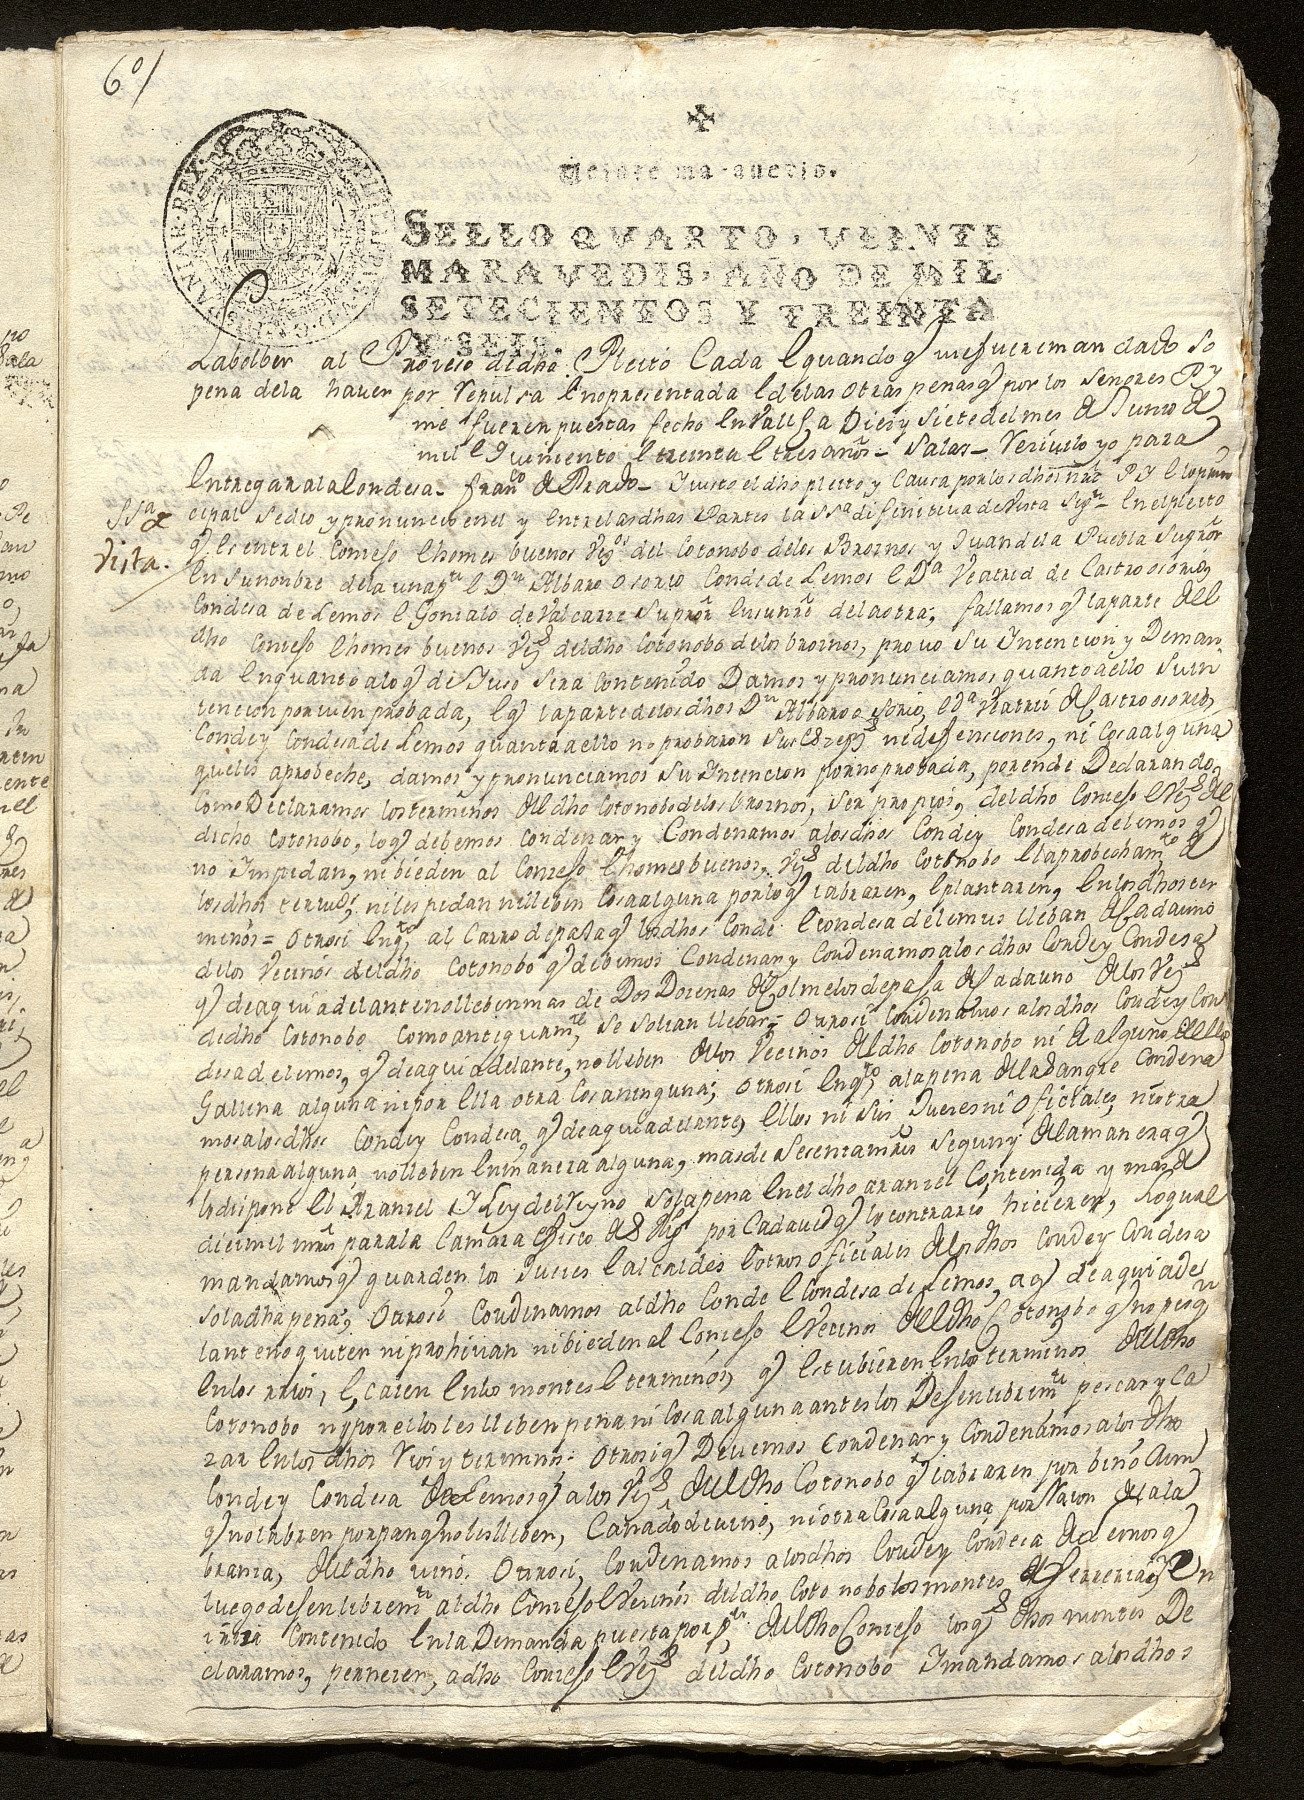 60/
Veinte maravedis.
SELLO QVARTO, VEINTE
MARAVEDIS, AÑO DE MIL
SETECIENTOS Y TREINTA
Y SEIS.
La bolber al Proceso didho Pleito Cada E quando q me fuere mandado so
pena dela haver por Repulsa E no presentada E de las otras penas q por los Señores P y
me fueren puestas fecho en Vall a Diez y siete del mes de Junio de
mil E Quiniento E treinta E tres años - Salas - Recivilo yo para
Entregar a la Condesa - Franco de Prado - Y visto el dho pleito y Causa por los dhos nros P Y E lo prin
SSa de
Vista.
cipal se dio y pronuncio en el y Entre las dhas Partes la SSa difinitiva de Vista Sigte - En el pleito
q Es entre el Conzejo E homes buenos Vezos del Cotonobo de los Brosmos y Juan de la Puebla su Pror
En su nombre de la una pte E Dn Albaro osorio Conde de Lemos E Da Veatriz de Castro osorio
Condesa de Lemos E Gonzalo de Valcarze su pror En su nre de la otra; fallamos q la parte del
dho Conzejo E homes buenos Vezos del dho Cotonobo de los brosmos, provo su Intencion y Deman
da En quanto a lo q de Yuso sera Contenido Damos y pronunciamos quanto a ello su in
tencion por vien probada, E q la parte de los dhos Dn Albaro osorio, E Da Veatriz de Castro osorio,
Conde y Condesa de Lemos quanto a ello no probaron sus Exepz ni defensiones, ni Cosa alguna
que les aprobeche, damos y pronunciamos su Intencion por no probada, por ende Declarando
Como Declaramos los terminos del dho Cotonobo de los brosmos, ser propios, del dho Conzejo E Vezos del
dicho Cotonobo, lo q debemos Condenar y Condenamos a los dhos Conde y Condesa de Lemos q
no Impidan, ni bieden al Conzejo E homes buenos, Vezos del dho Cotonobo El aprobechamto de
los dhos termos; ni les pidan ni lleben Cosa alguna por lo q labraren, E plantaren, En los dhos ter
minos = Otrosi En qto al Carro de paja q los dhos Conde E Condesa de Lemus lleban de Cada uno
de los Vecinos del dho Cotonobo q debemos Condenar y Condenamos a los dhos Conde y Condesa
q de aqui adelante no lleben mas de Dos Dozenas de Colmelos de paja de Cada uno de los Vezos
de dho Cotonobo Como antiguamte, se solian llebar; Otrosi Condenamos a los dhos Conde y Con
desa de Lemos, q de aqui adelante, no lleben de los Vecinos del dho Cotonobo ni de alguno de ellos
Gallina alguna ni por Ella otra Cosa ninguna; Otrosi En qto, a la pena de la Sangre Condena
mos a los dhos Conde y Condesa q de aqui adelante, Ellos ni sus Jueces ni Oficiales, ni otra
persona alguna, no lleben En manera alguna, mas de Sesenta mrs Segun y de la manera q
lo dispone El Aranzel Y Ley del Reyno so la pena En el dho aranzel Contenida y mas de
diez mil mrs para la Camara E fisco de S Mg por Cada vez q lo contrario hicieren, Lo qual
mandamos q guarden los Jueces E alcaldes E otros oficiales de los dhos Conde y Condesa
so la dha pena; Otrosi Condenamos al dho Conde E Condesa de Lemos, a q de aqui ade
lante no quiten ni prohivan ni bieden al Conzejo E Vecinos del dho Cotonobo q no pesqn
En los rrios, E, Cazen En los montes E terminos, q Estubieren En los terminos del dho
Cotonobo ny por ello les lleben pena ni Cosa alguna antes los Dejen libremte pescar y Ca
zar En los dhos Rios y terminos: Otrosi q Devemos Condenar y Condenamos a los dho
Conde y Condesa de Lemos q a los Vezos del dho Cotonobo q labraren por bino Aun
q no labren por pan q no les lleben, Cañado de vino, ni otra Cosa alguna por Razon de la la
branza, del dho vino. Otrosi, Condenamos a los dhos Conde y Condesa de Lemos q
luego dejen libremte al dho Conzejo E Vecinos del dho Cotonobo los montes de Ferreria q En
Contenido En la Demanda puesta por pte, del dho Conzejo los q dhos montes De
claramos, pernezer, a dho Conzejo E Vezos del dho Cotonobo Y mandamos a los dhos